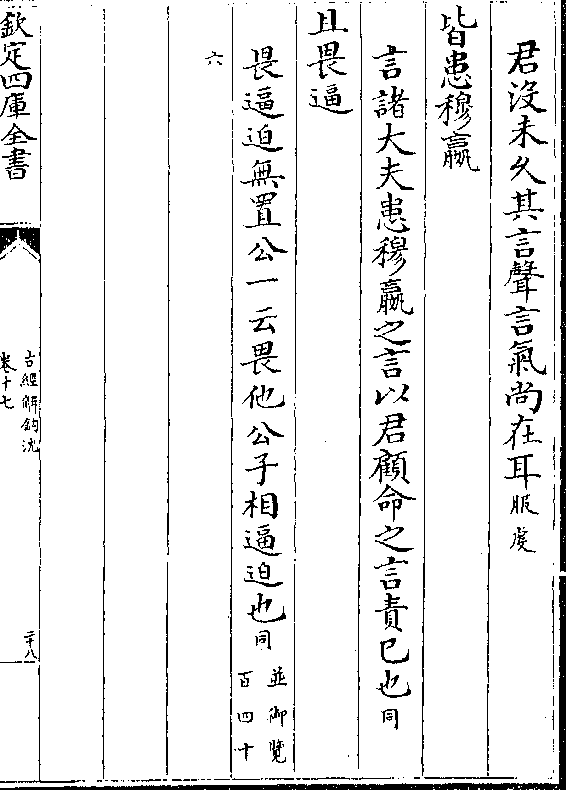 君没未久其言聲言氣尚在耳服䖍
皆患穆嬴
言諸大夫患穆嬴之言以君顧命之言責已也同
且畏逼
畏逼迫無置公一云畏他公子相逼迫也同並御覽百四十
六
欽定四庫全書
古經解鈎沈
卷十七
二十八